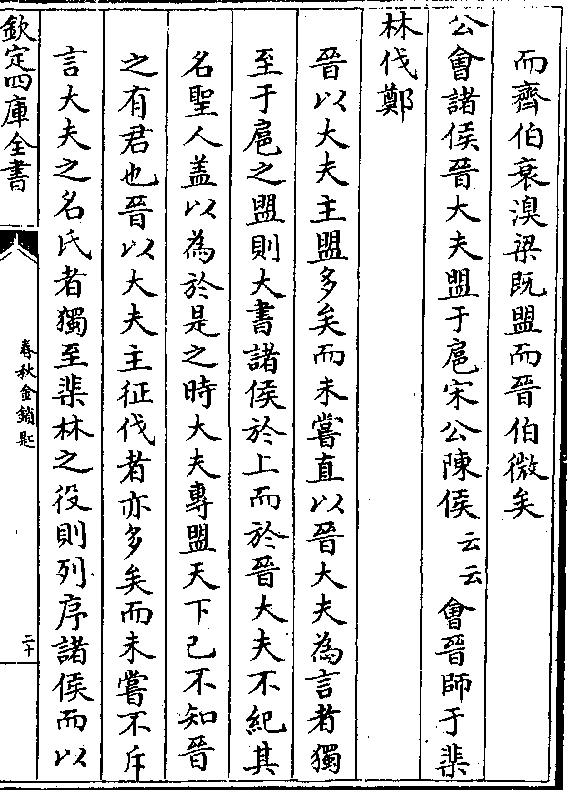 而齊伯衰湨梁既盟而晉伯微矣
公會諸侯晉大夫盟于扈宋公陳侯云云會晉師于棐
林伐鄭
晉以大夫主盟多矣而未嘗直以晉大夫為言者獨
至于扈之盟則大書諸侯於上而於晉大夫不紀其
名聖人盖以為於是之時大夫專盟天下已不知晉
之有君也晉以大夫主征伐者亦多矣而未嘗不斥
言大夫之名氏者獨至棐林之役則列序諸侯而以
欽定四庫全書
春秋金鎖匙
二十